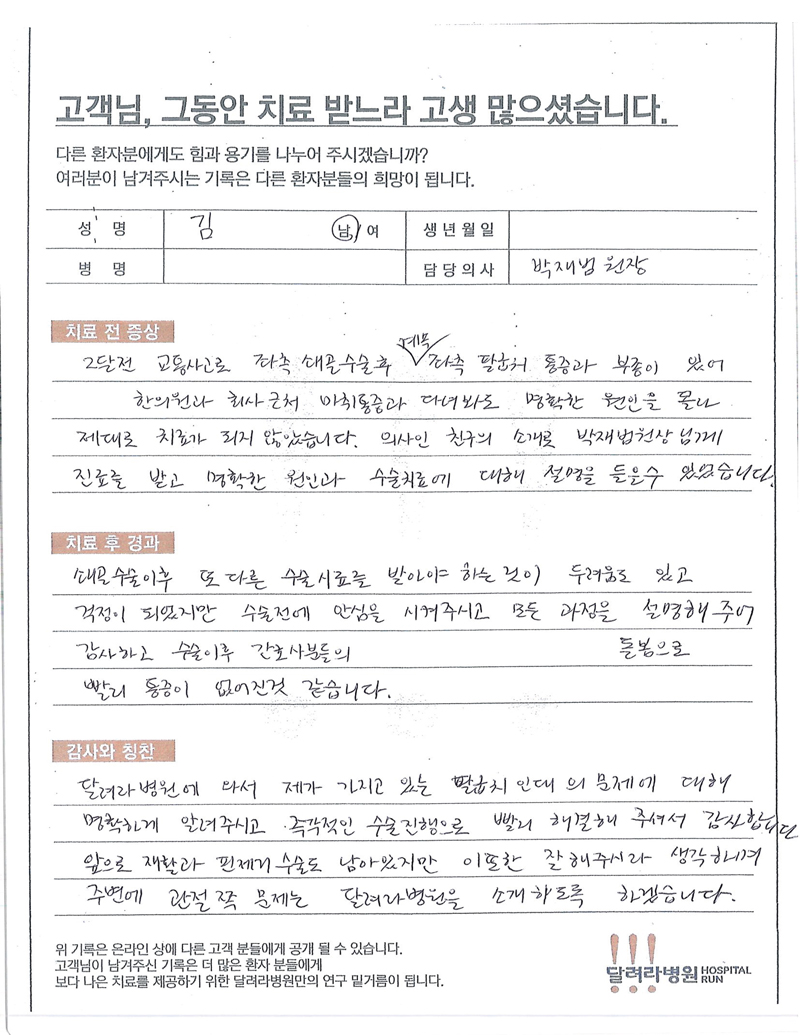 고객님, 그동안 치료 받느라 고생 많으셨습니다.
다른 환자분에게도 힘과 용기를 나누어 주시겠습니까?
여러분이 남겨주시는 기록은 다른 환자분들의 희망이 됩니다.
성 명 김 남/여 생년월일
병 명 담당의사 박재범원장
치료 전 증상
계속
2달전 교통사고로 좌측 쇄골수술후 좌측 팔꿈치 통증과 부종이 있어
한의원과 회사근처 마취통증과 다녀봐도 명확한 원인을 몰라
제대로 치료가 되지 않았습니다. 의사인 친구의 소개로 박재범원장님께
진료를 받고 명확한 원인과 수술치료에 대해 설명을 들을수 있었습니다.
치료 후 경과
쇄골수술이후 또다른 수술치료를 받아야 하는것이 두려움도 있고
걱정이 되었지만 수술전에 안심을 시켜주시고 모든 과정을 설명해주어
감사하고 수술이후 간호사분들의 돌봄으로
빨리 통증이 없어진것 같습니다.
감사와 칭찬
달려라병원에 와서 제가 가지고 있는 팔꿈치 인대의 문제에 대해
명확하게 알려주시고 즉각적인 수술진행으로 빨리 해결해 주셔서 감사합니다
앞으로 재활과 핀제거수술도 남아있지만 이또한 잘해주시리라 생각하며
주변에 관절쪽 문제는 달려라병원을 소개하도록 하겠습니다.
위 기록은 온라인 상에 다른 고객 분들에게 공개 될 수 있습니다.
고객님이 남겨주신 기록은 더 많은 환자 분들에게
보다 나은 치료를 제공하기 위한 달려라병원만의 연구 밑거름이 됩니다.
달려라병원 HOSPITAL RUN